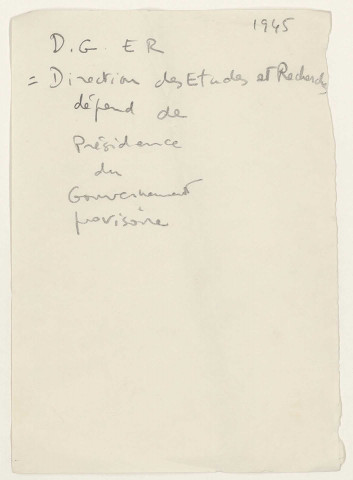 1945
D.G. ER
= Direction des Etudes et Recherches
dépend de
Présidence
du
Gouvernement
provisoire